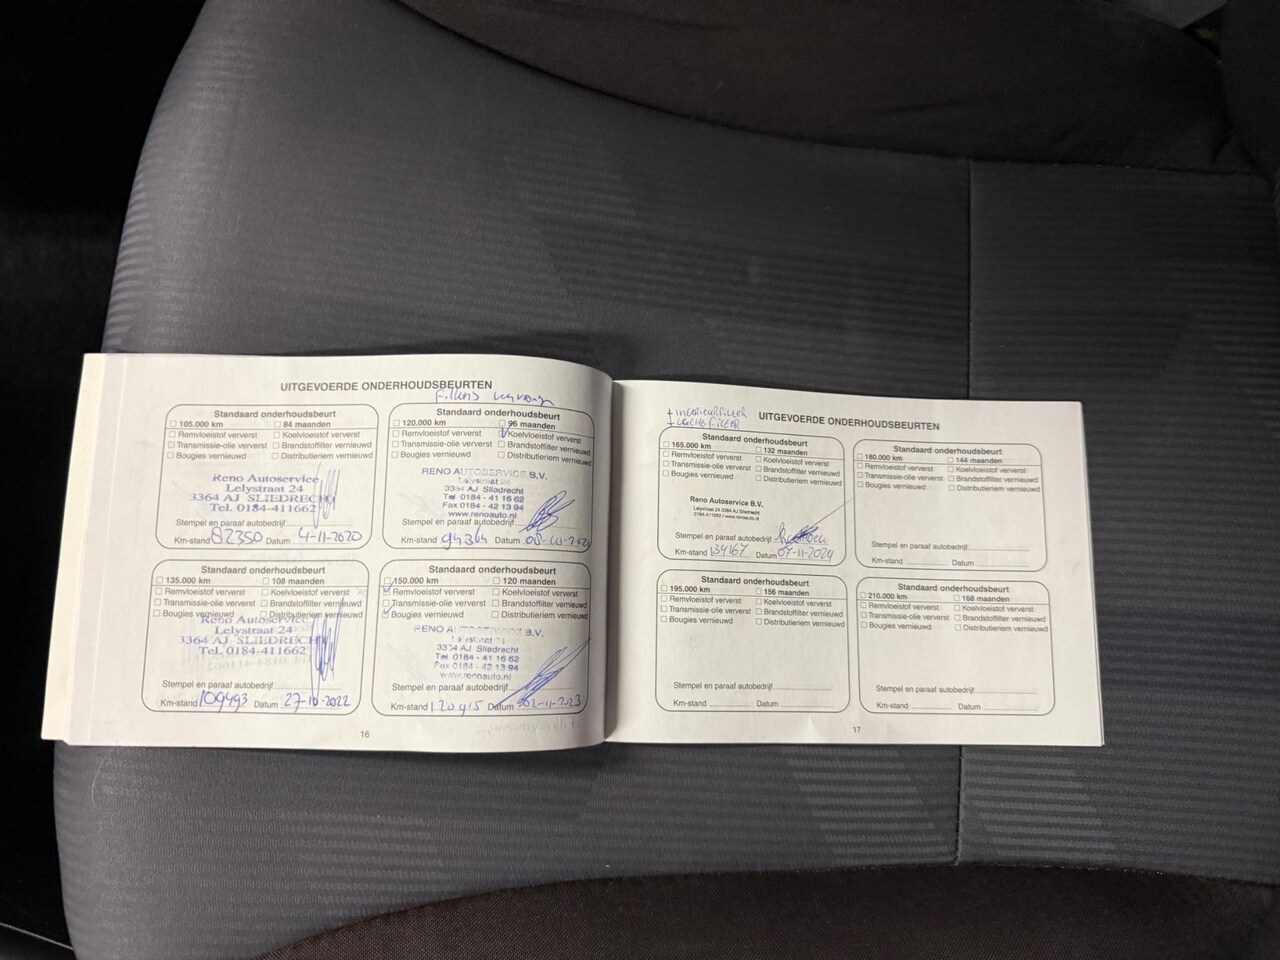 UITGEVOERDE ONDERHOUDSBEURTEN
Filters
Standaard onderhoudsbeurt
105.000 km 84 maanden
Remvloeistof ververst Koelvloeistof ververst
Transmissie-olie ververst Brandstoffilter vernieuwd
Bougies vernieuwd Distributieriem vernieuwd
Reno Autoservice
Lelystraat 24
3364 AJ SLIEDRECHT
Tel. 0184-411662
Stempel en paraaf autobedrijf
Km-stand 82350 Datum 4-11-2020
Standaard onderhoudsbeurt
120.000 km 96 maanden
Remvloeistof ververst Koelvloeistof ververst
Transmissie-olie ververst Brandstoffilter vernieuwd
Bougies vernieuwd Distributieriem vernieuwd
RENO AUTOSERVICE B.V.
Lelystraat 24
3364 AJ Sliedrecht
Tel 0184 - 41 16 62
Fax 0184 - 42 13 94
www.renoauto.nl
Stempel en paraaf autobedrijf
Km-stand 94364 Datum
Standaard onderhoudsbeurt
135.000 km 108 maanden
Remvloeistof ververst Koelvloeistof ververst
Transmissie-olie ververst Brandstoffilter vernieuwd
Bougies vernieuwd Distributieriem vernieuwd
Reno Autoservice
Lelystraat 24
3364 AJ SLIEDRECHT
Tel. 0184-411662
Stempel en paraaf autobedrijf
Km-stand 109493 Datum 27-10-2022
Standaard onderhoudsbeurt
150.000 km 120 maanden
Remvloeistof ververst Koelvloeistof ververst
Transmissie-olie ververst Brandstoffilter vernieuwd
Bougies vernieuwd Distributieriem vernieuwd
RENO AUTOSERVICE B.V.
Lelystraat 24
3364 AJ Sliedrecht
Tel 0184 - 41 16 62
Fax 0184 - 42 13 94
www.renoauto.nl
Stempel en paraaf autobedrijf
Km-stand 120915 Datum 02-11-2023
16
+ interieurfilter
+ luchtfilter
UITGEVOERDE ONDERHOUDSBEURTEN
Standaard onderhoudsbeurt
165.000 km 132 maanden
Remvloeistof ververst Koelvloeistof ververst
Transmissie-olie ververst Brandstoffilter vernieuwd
Bougies vernieuwd Distributieriem vernieuwd
Reno Autoservice B.V.
Lelystraat 24 3364 AJ Sliedrecht
0184-411662 / www.renoauto.nl
Stempel en paraaf autobedrijf
Km-stand 134167 Datum 07-11-2024
Standaard onderhoudsbeurt
180.000 km 144 maanden
Remvloeistof ververst Koelvloeistof ververst
Transmissie-olie ververst Brandstoffilter vernieuwd
Bougies vernieuwd Distributieriem vernieuwd
Stempel en paraaf autobedrijf
Km-stand Datum
Standaard onderhoudsbeurt
195.000 km 156 maanden
Remvloeistof ververst Koelvloeistof ververst
Transmissie-olie ververst Brandstoffilter vernieuwd
Bougies vernieuwd Distributieriem vernieuwd
Stempel en paraaf autobedrijf
Km-stand Datum
Standaard onderhoudsbeurt
210.000 km 168 maanden
Remvloeistof ververst Koelvloeistof ververst
Transmissie-olie ververst Brandstoffilter vernieuwd
Bougies vernieuwd Distributieriem vernieuwd
Stempel en paraaf autobedrijf
Km-stand Datum
17